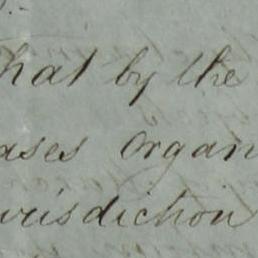 that by the
ases Organ
urisdiction